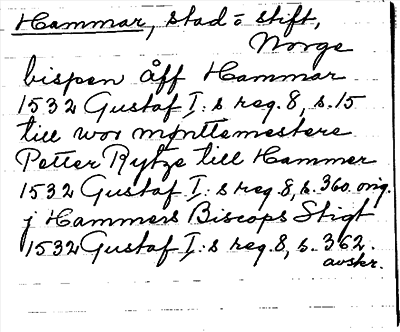 Hammar, stad o stift,
Norge
bispen åff Hammar
1532 Gustaf I:s reg. 8, s. 15
till wor mÿnttemestere
Petter Rytze till Hammer
1532 Gustaf I:s reg. 8, s. 360. orig.
j Hammers Biscops Stigt
1532 Gustaf I:s reg. 8, s. 362.
avskr.